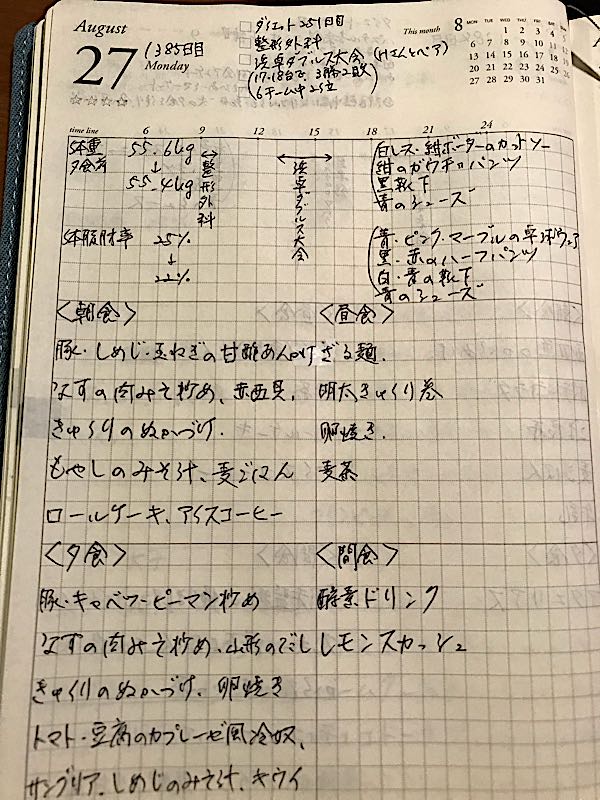 August
27
Monday
(1385日目
□ ダイエット251日目
□ 整形外科
□ 浜卓ダブルス大会 (Hさんとペア)
(17-18台で 3勝2敗
6チーム中2位)
This month 8
MON TUE WED THU FRI SAT SUN
1 2 3 4 5
6 7 8 9 10 11 12
13 14 15 16 17 18 19
20 21 22 23 24 25 26
27 28 29 30 31
☆☆☆☆
time line 6 9 12 15 18 21 24
体重 55.6kg
夕食前 ↓
55.4kg
↔整形外科
↔浜卓ダブルス大会
体脂肪率 25%
↓
22%
(白レース・紺ボーダーのカットソー
紺のガウチョパンツ
黒靴下
青のシューズ
(青・ピンク・マーブルの卓球ウェア
黒・赤のハーフパンツ
白・青の靴下
青のシューズ
<朝食>
豚・しめじ・玉ねぎの甘酢あんかけ
なすの肉みそ炒め、赤西貝、
きゅうりのぬかづけ、
もやしのみそ汁、麦ごはん
ロールケーキ、アイスコーヒー
<昼食>
ざる麺、
明太きゅうり巻
卵焼き、
麦茶
<夕食>
豚・キャベツ・ピーマン炒め
なすの肉みそ炒め、山形のだし
きゅうりのぬかづけ、卵焼き
トマト・豆腐のカプレーゼ風冷奴、
サングリア、しめじのみそ汁、キウイ
<間食>
酵素ドリンク
レモンスカッシュ